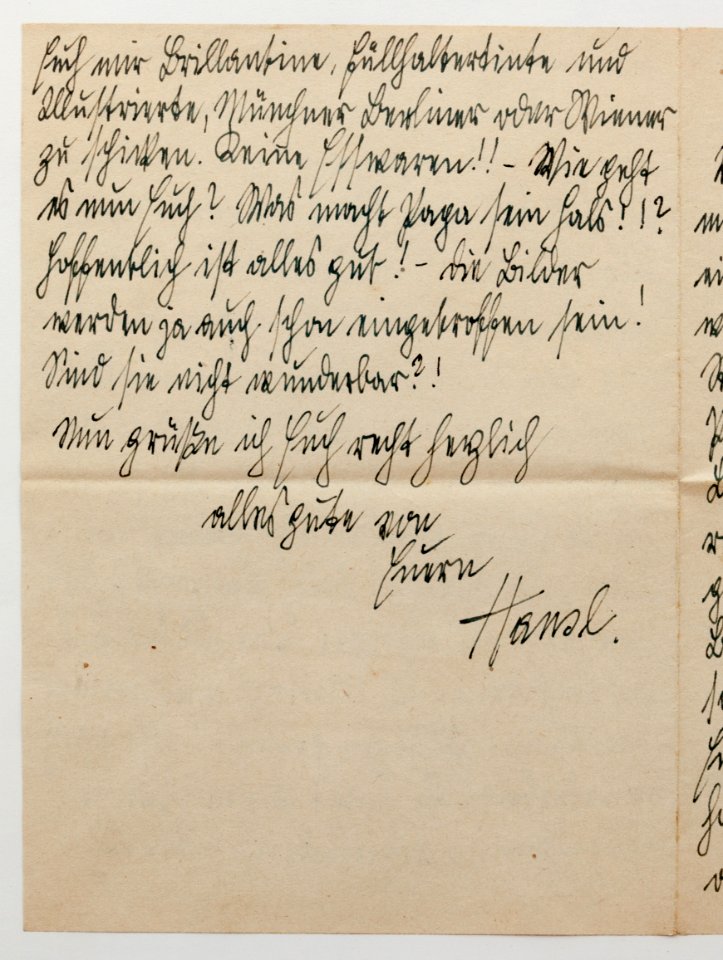 Euch mir Brillantine, Füllhaltertinte und
Illustrierte, Münchner Berliner oder Wiener
zu schicken. Keine Esswaren!! - Wie geht
es nun Euch? Was macht Papa sein Hals!!?
Hoffentlich ist alles gut! - Die Bilder
werden ja auch schon eingetroffen sein!
Sind sie nicht wunderbar?!
Nun grüße ich Euch recht herzlich
alles gute von
Euern
Hansl.